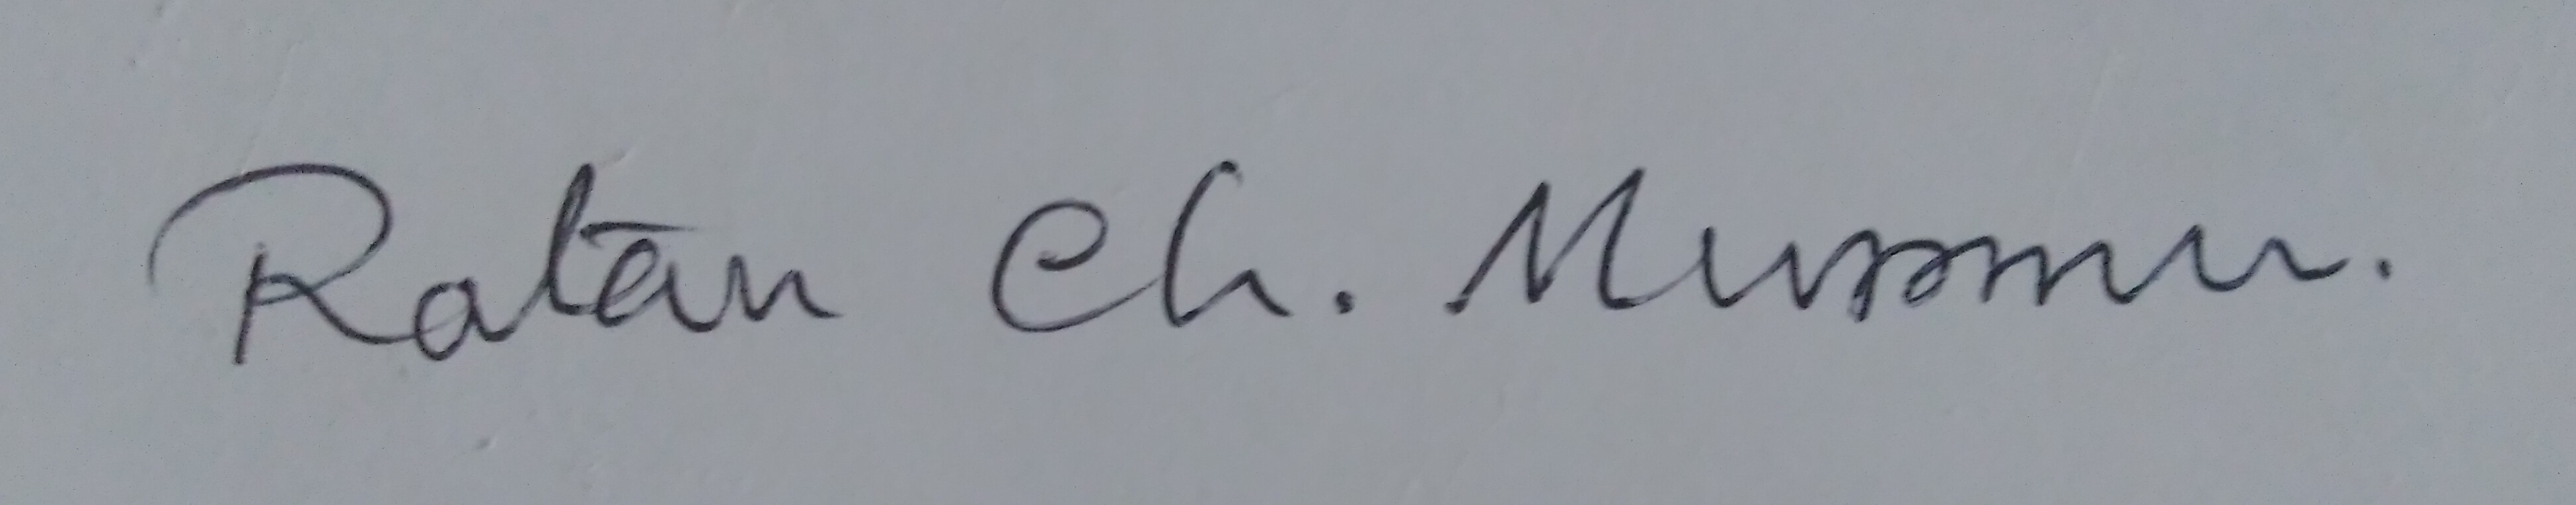 Ratan Ch. Murmu.